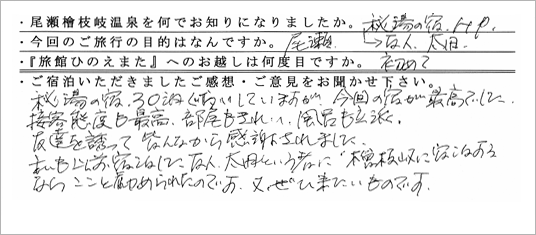 ・尾瀬檜枝岐温泉を何でお知りになりましたか。 秘湯の宿、HP.
・今回のご旅行の目的はなんですか。 尾瀬. →友人、太田.
・『旅館ひのえまた』へのお越しは何度目ですか。 初めて
・ご宿泊いただきましたご感想・ご意見をお聞かせ下さい。
秘湯の宿、30泊ぐらいしていますが、今回の宿が最高でした.
接客態度も最高、部屋もきれい、風呂も立派.
友達を誘って皆んなから感謝されました.
私も以前宿泊した友人、太田という者に"檜枝岐に宿泊する
なら ここと勧められたのです. 又、ぜひ来たいものです.